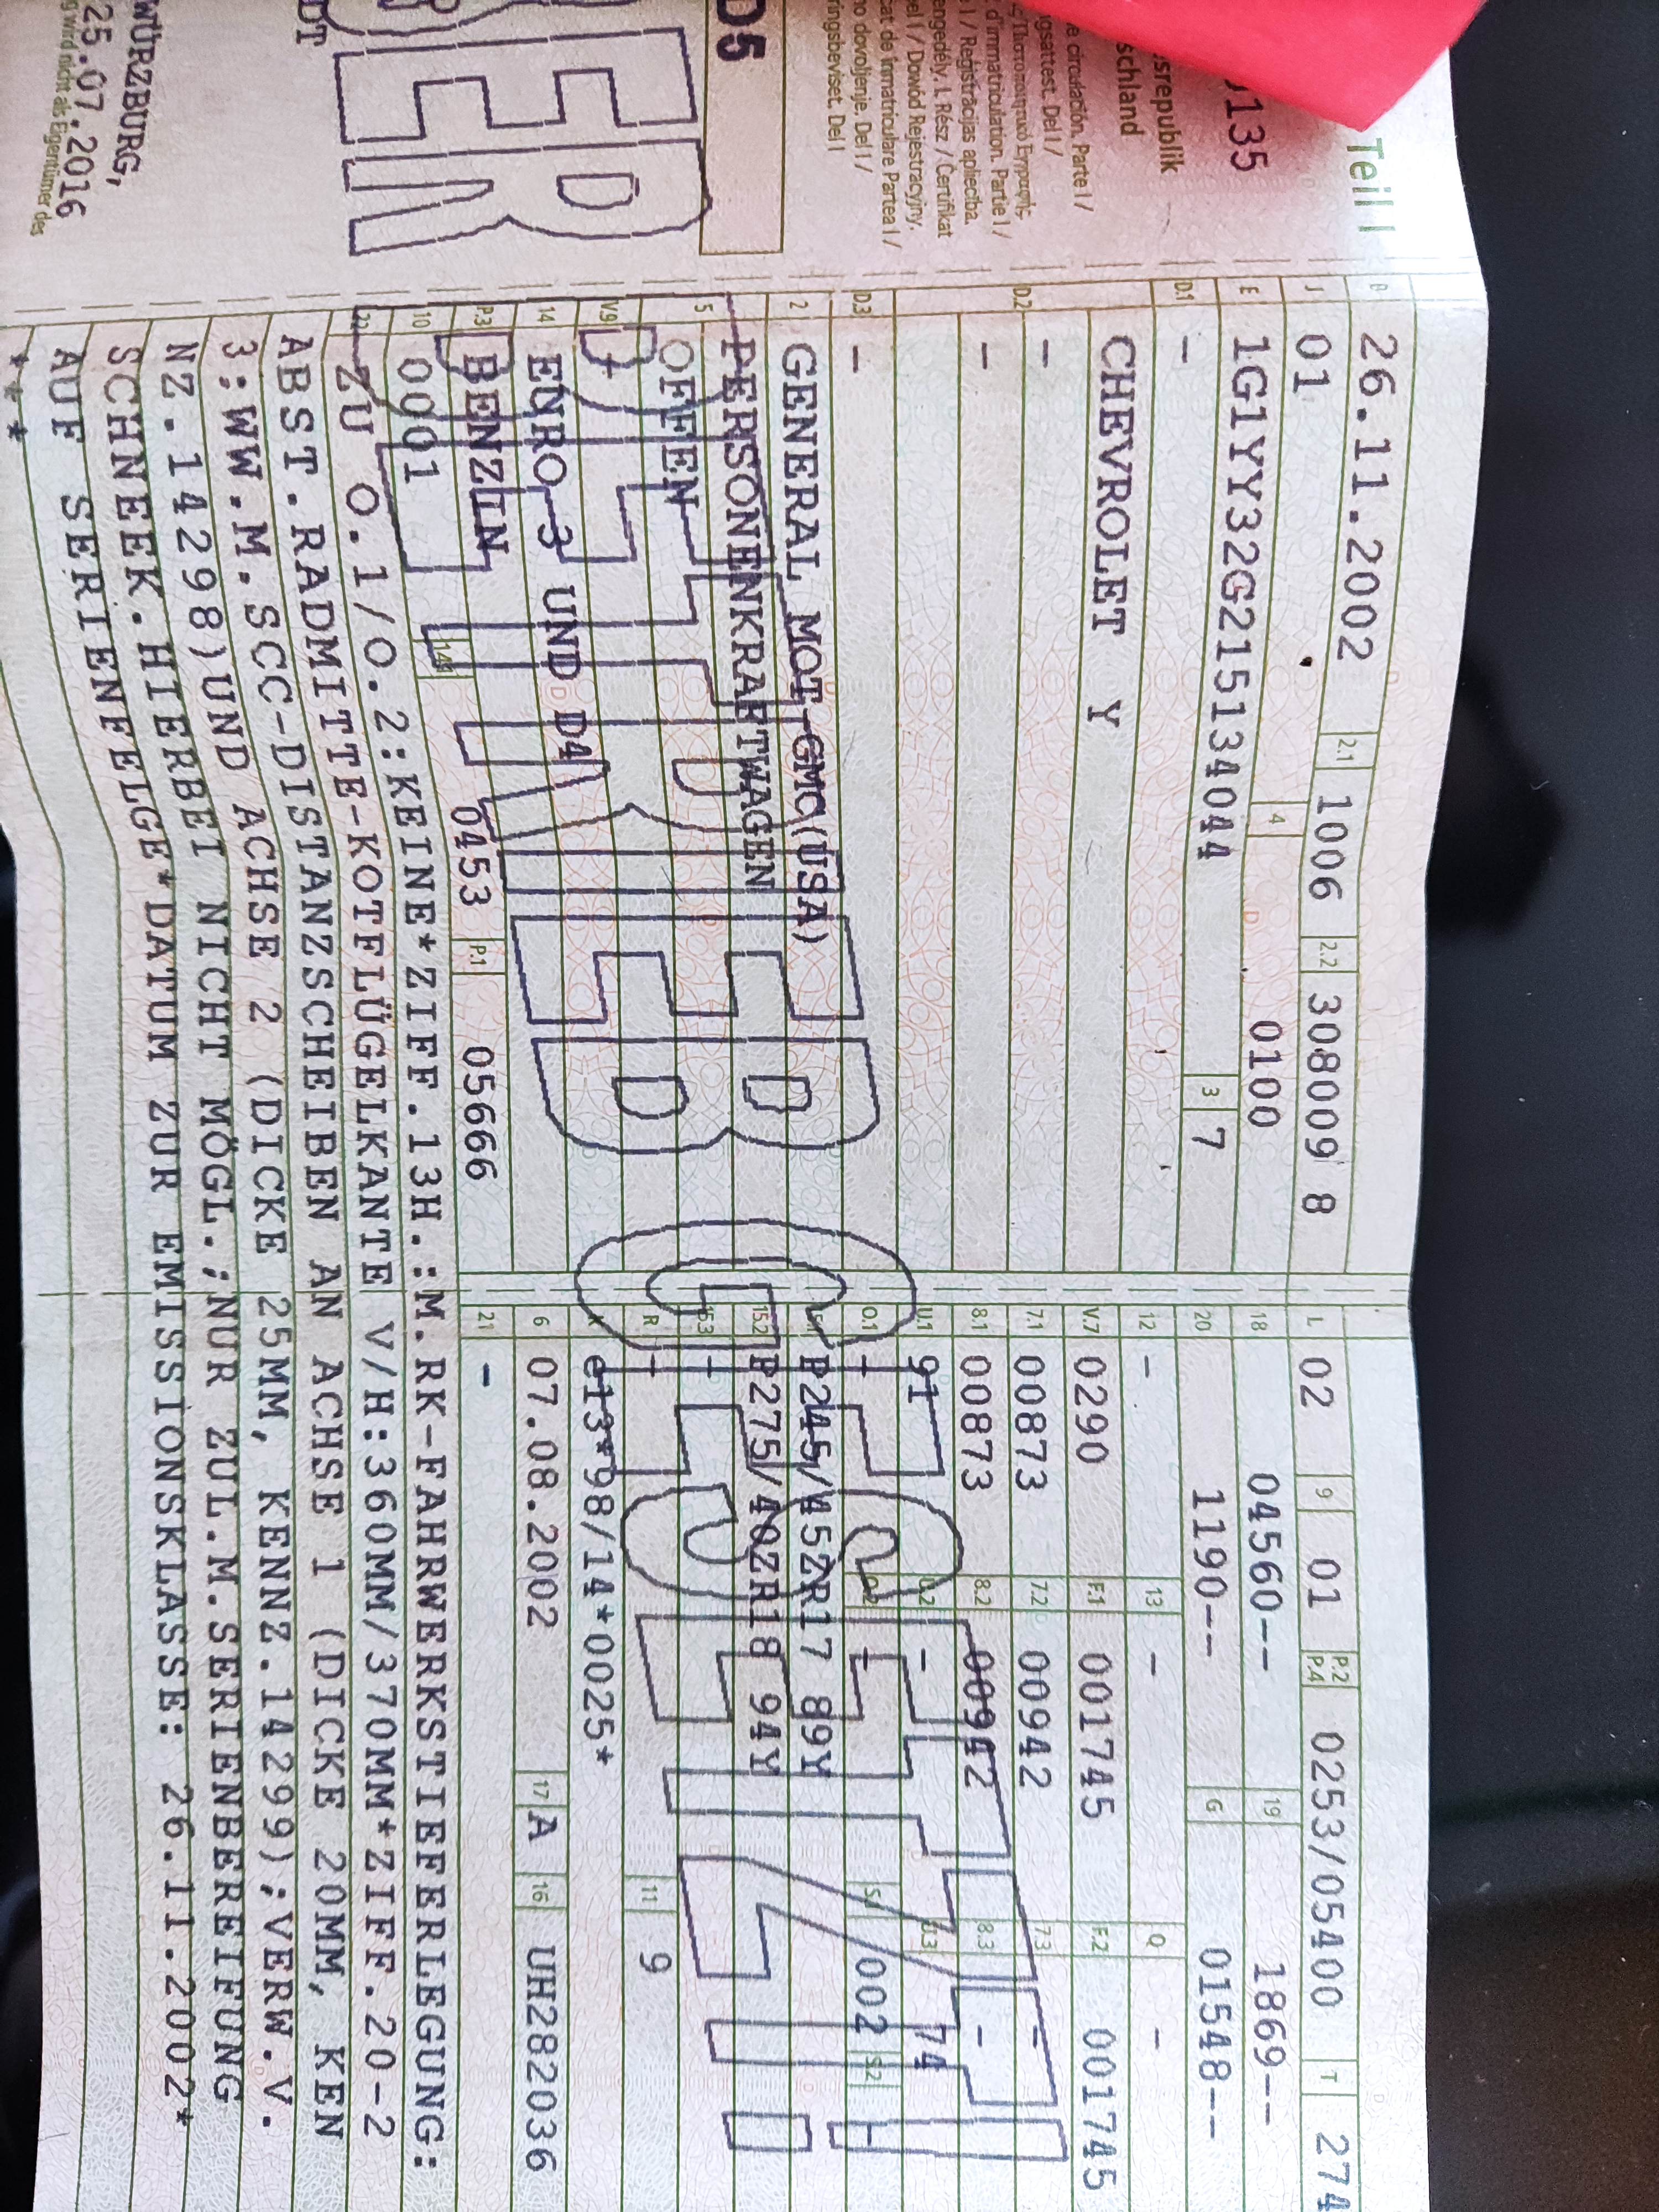 Teil I
0135
schland
e circulación. Parte I /
ugsattest. Del I /
d'immatriculation. Partie I /
e I / Reģistrācijas apliecība.
engedély. I. Rész / Ċertifikat
el I / Dowód Rejestracyjny.
cat de înmatriculare Partea I /
o dovoljenje. Del I /
ringsbeviset. Del I
D5
DT
WÜRZBURG,
25.07.2016
g wird nicht als Eigentümer des
B 26.11.2002 2.1 1006 2.2 308009 8
J 01 4 0100
E 1G1YY32G215134044 3 7
D.1 -
CHEVROLET Y
D.2 -
-
D.3 -
2 GENERAL MOT-GMC(USA)
5 PERSONENKRAFTWAGEN
OFFEN
V.9 -
14 EURO 3 UND D4
P.3 BENZIN
10 0001 14.1 0453 P.1 05666
L 02 9 01 P.2 P.4 0253/05400 T 274
18 04560-- 19 1869--
20 1190-- G 01548--
12 - 13 - Q -
V.7 0290 F.1 001745 F.2 001745
7.1 00873 7.2 00942 7.3 -
8.1 00873 8.2 00942 8.3 -
U.1 91 U.2 - U.3 74
O.1 - O.2 - S.1 002 S.2 -
15.1 P245/45ZR17 89Y
15.2 P275/40ZR18 94Y
15.3 -
R - 11 9
K e13*98/14*0025*
6 07.08.2002 17 A 16 UH282036
21 -
22 ZU O.1/O.2:KEINE*ZIFF.13H.:M.RK-FAHRWERKSTIEFERLEGUNG:
ABST.RADMITTE-KOTFLÜGELKANTE V/H:360MM/370MM*ZIFF.20-2
3:WW.M.SCC-DISTANZSCHEIBEN AN ACHSE 1 (DICKE 20MM, KEN
NZ.14298)UND ACHSE 2 (DICKE 25MM, KENNZ.14299);VERW.V.
SCHNEEK.HIERBEI NICHT MÖGL.;NUR ZUL.M.SERIENBEREIFUNG
AUF SERIENFELGE*DATUM ZUR EMISSIONSKLASSE: 26.11.2002*
***